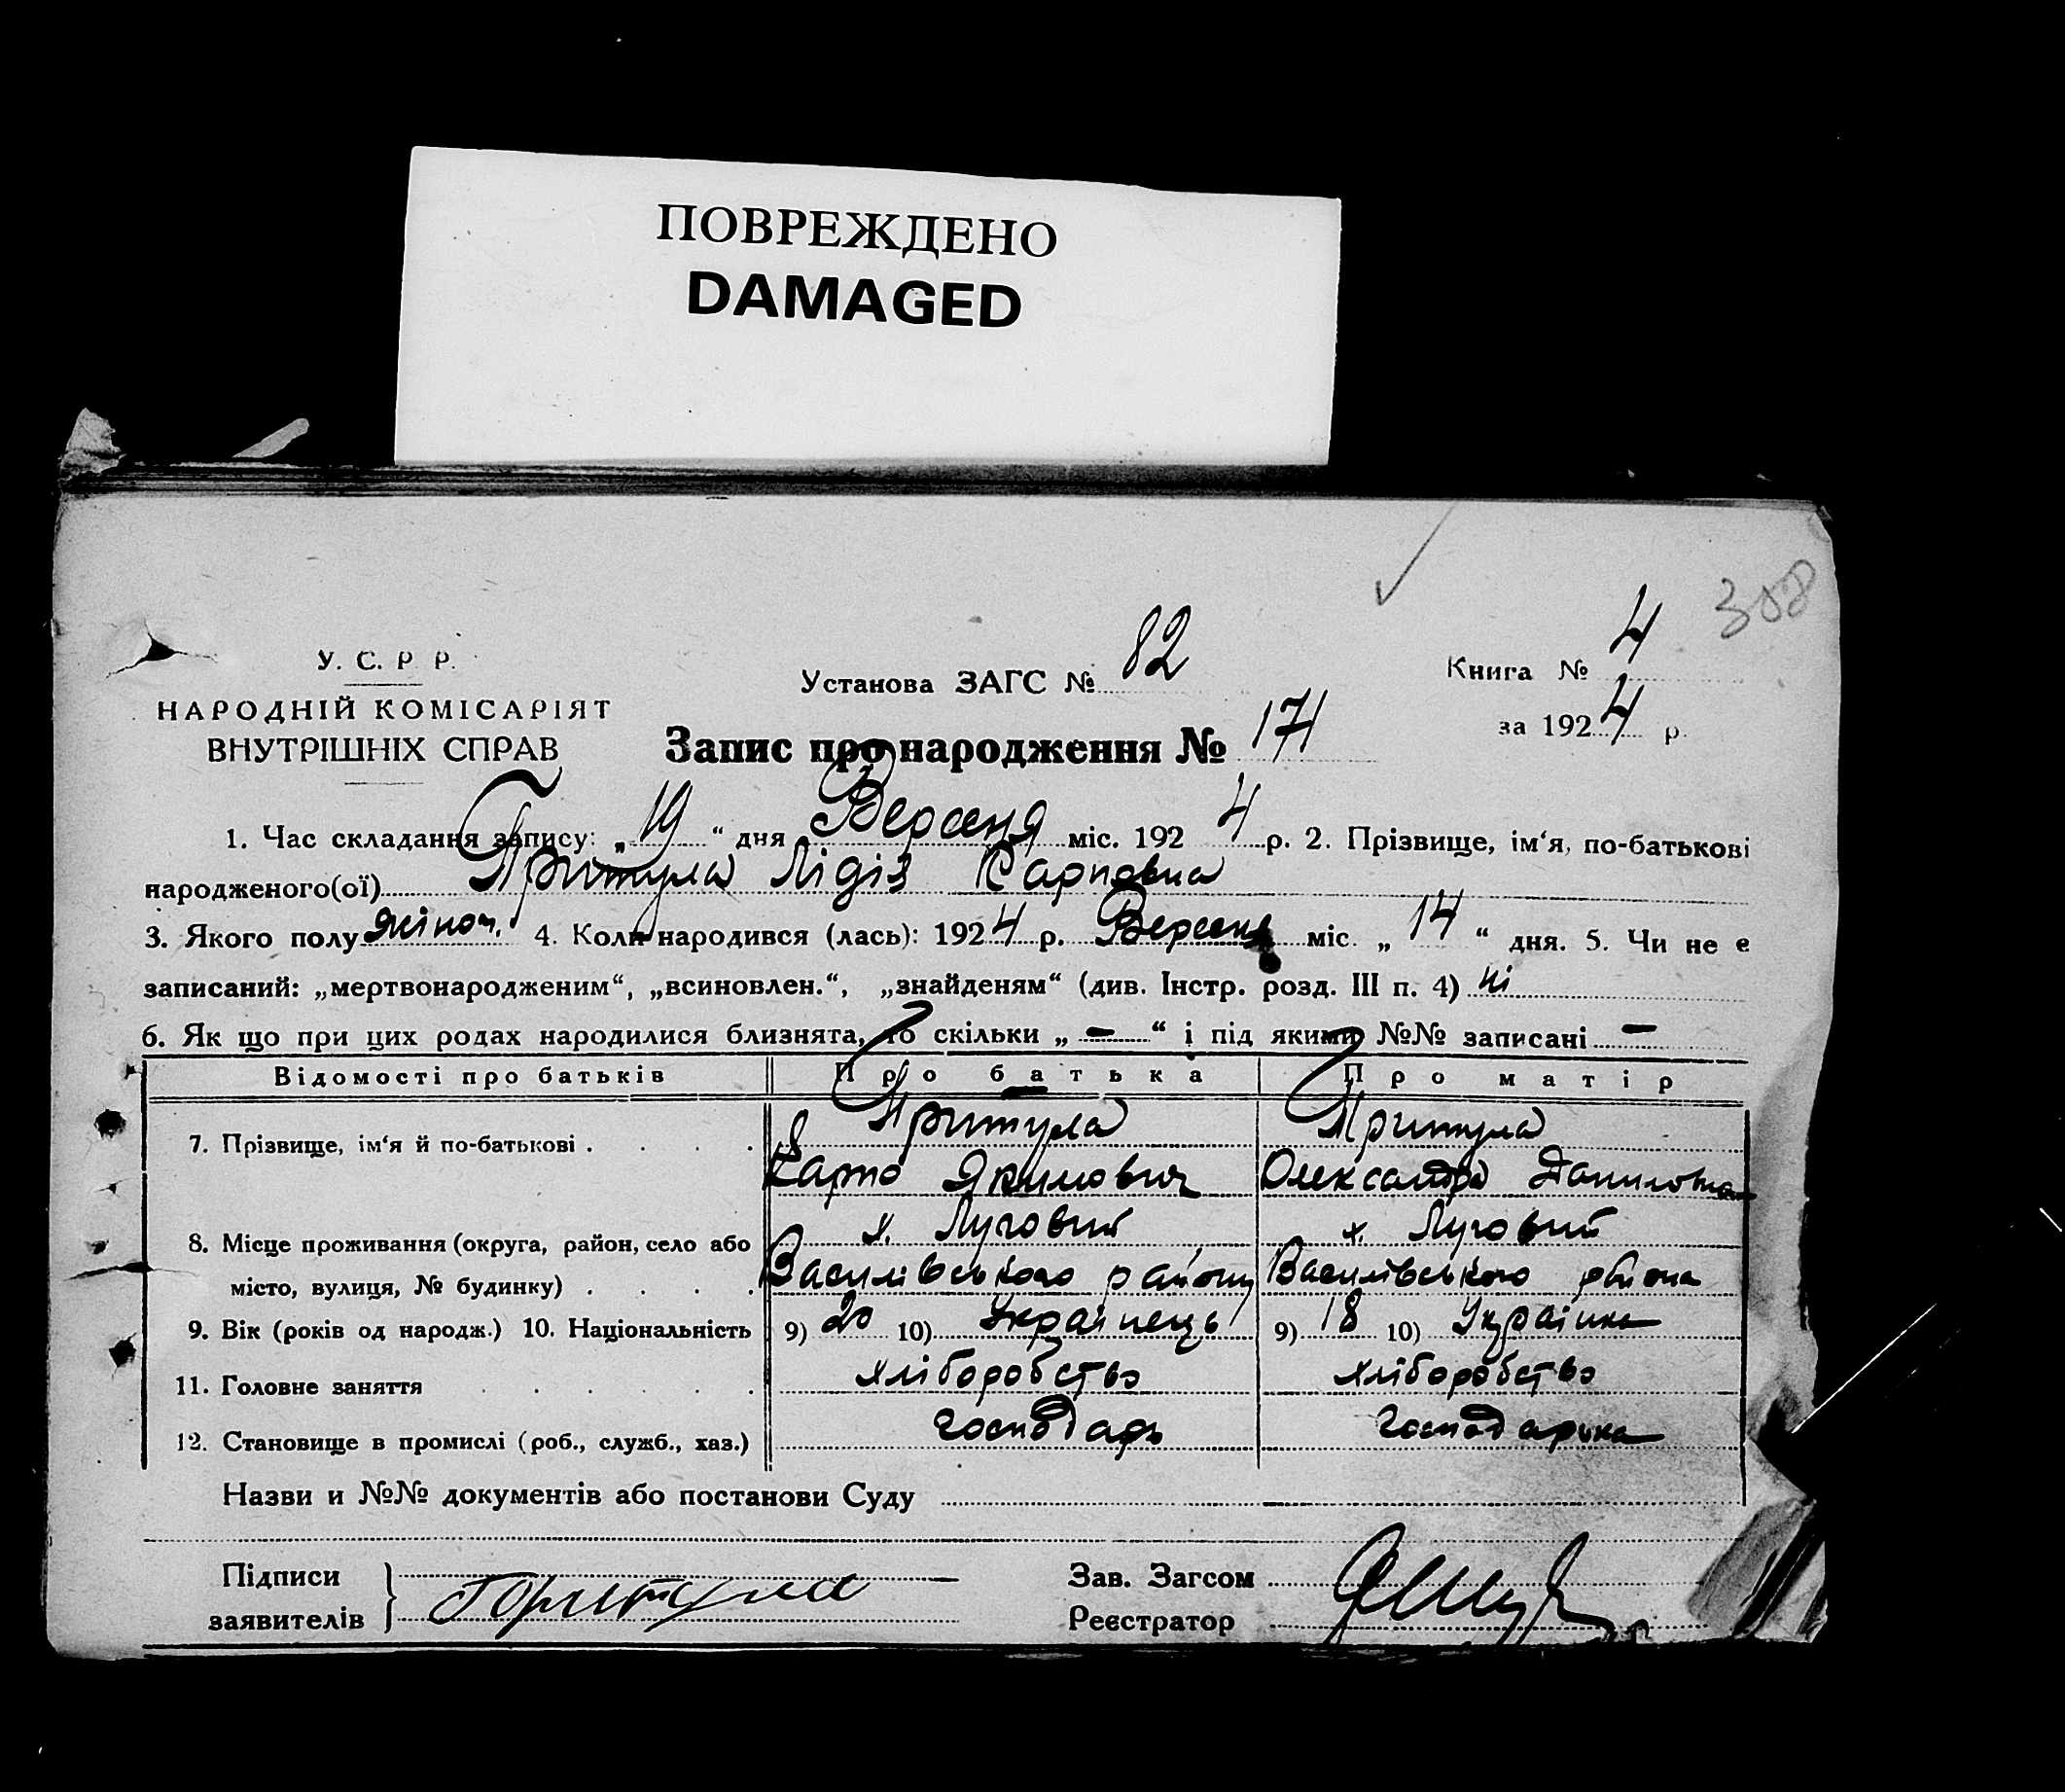 ПОВРЕЖДЕНО
DAMAGED
308
У. С. Р Р.
НАРОДНІЙ КОМІСАРІЯТ
ВНУТРІШНІХ СПРАВ
Установа ЗАГС № 82
Книга № 4
за 1924 р.
Запис про народження № 171
1. Час складання запису: „19“ дня Вересня міс. 1924 р. 2. Прізвище, ім‘я, по-батькові
народженого(ої) Притула Лідія Карповна
3. Якого полу жіноч. 4. Коли народився (лась): 1924 р. Вересня міс. „14“ дня. 5. Чи не є
записаний: „мертвонародженим“, „всиновлен.“, „знайденям“ (див. Інстр. розд. III п. 4) ні
6. Як що при цих родах народилися близнята, то скільки „—“ і під якими №№ записані —
Відомості про батьків Про батька Про матір
7. Прізвище, ім‘я й по-батькові . . . . Притула Притула
Карпо Якимович Олександра Даниловна
х. Луговий х. Луговий
8. Місце проживання (округа, район, село або
місто, вулиця, № будинку) . . . . Василівського району Василівського района
9. Вік (років од народж.) 10. Національність 9) 20 10) Українець 9) 18 10) Українка
11. Головне заняття . . . . . . хліборобство хліборобство
12. Становище в промислі (роб., служб., хаз.) господарь господарька
Назви и №№ документів або постанови Суду
Підписи
заявителів Притула
Зав. Загсом
Реєстратор